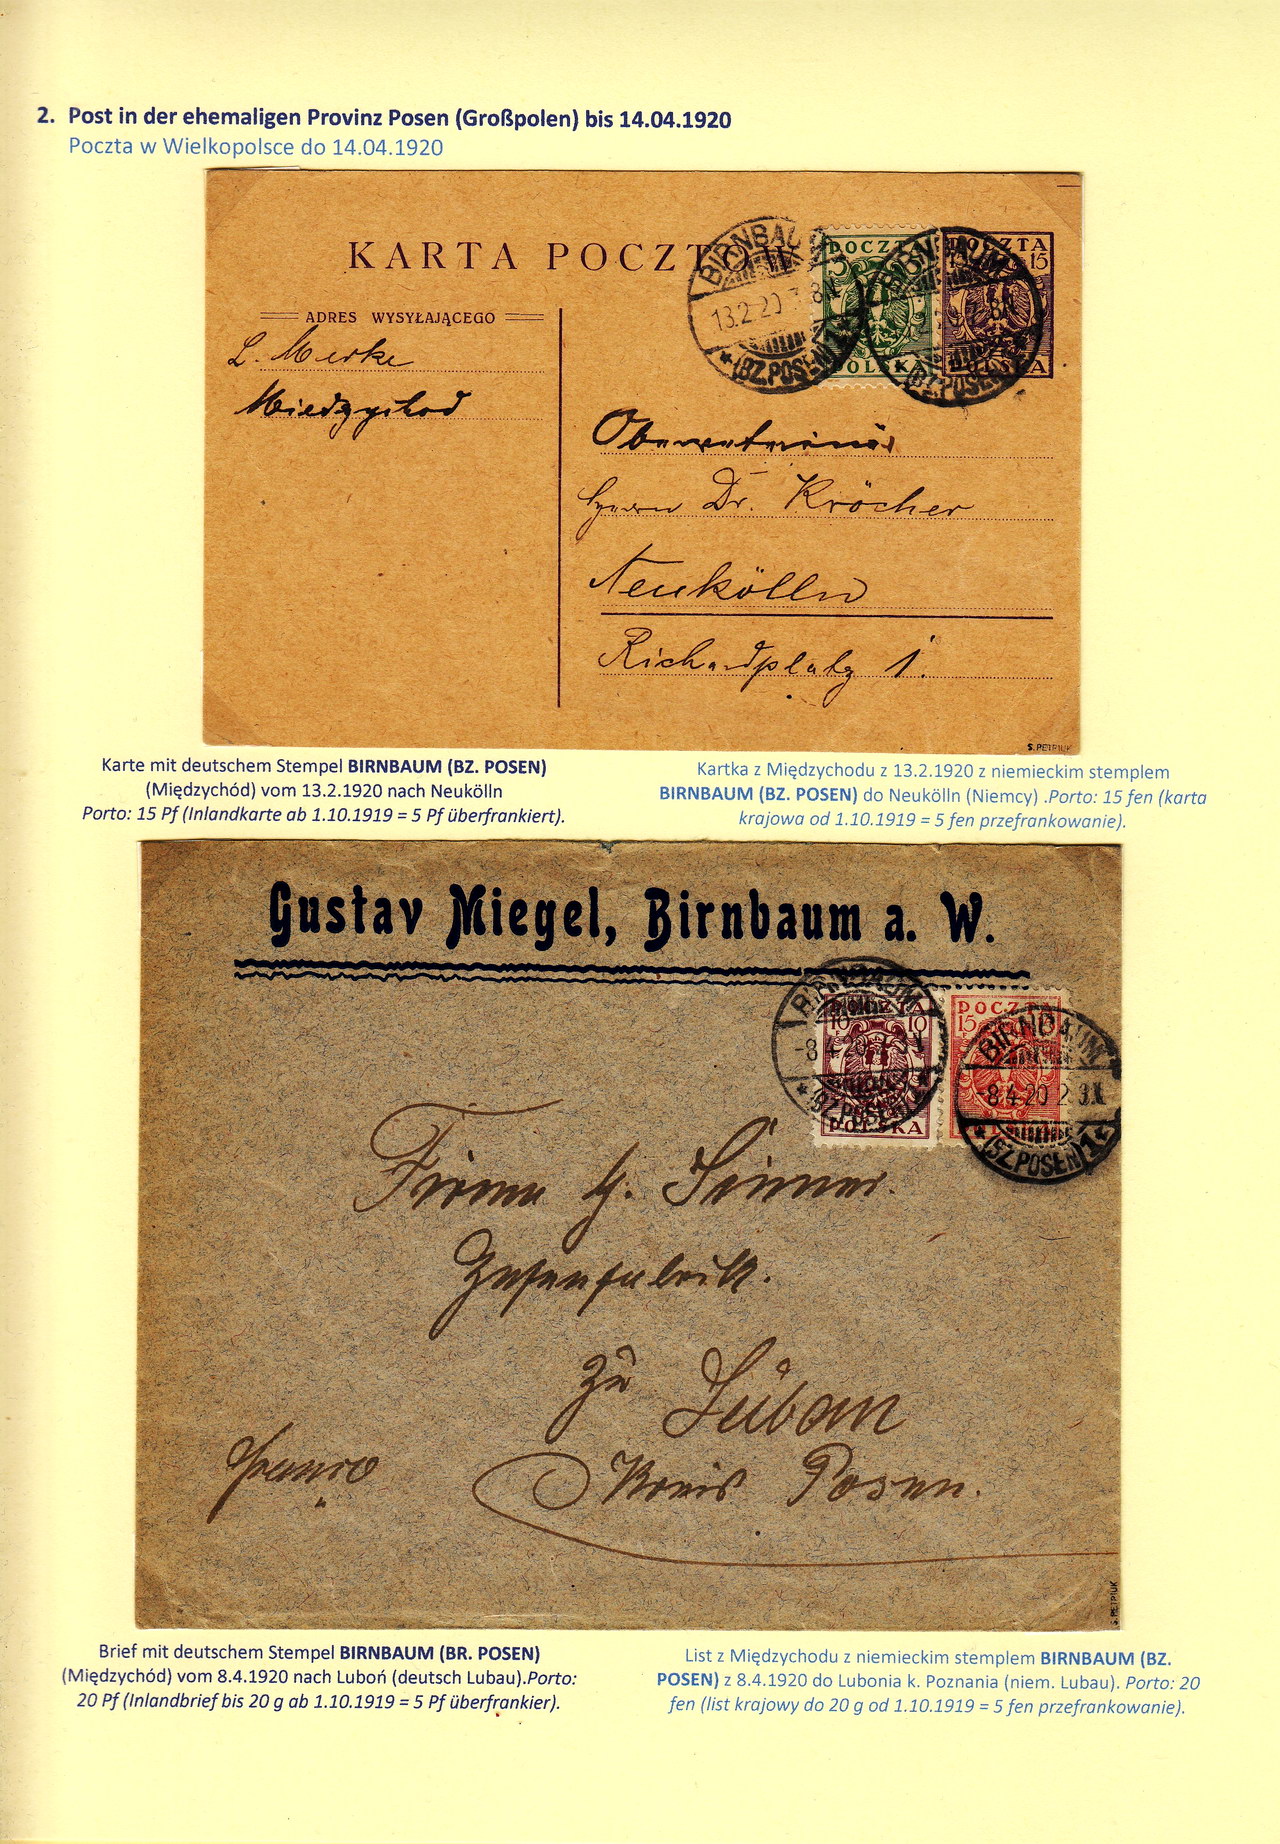 2. Post in der ehemaligen Provinz Posen (Großpolen) bis 14.04.1920
Poczta w Wielkopolsce do 14.04.1920
KARTA POCZTOW
BIRNBAUM
13.2.20 7-8N
*(BZ.POSEN)1*
POCZTA
5
POLSKA
BIRNBAUM
(BZ.POSEN)
POCZTA
15 15
POLSKA
ADRES WYSYŁAJĄCEGO
L. Merke
Miedzychod
Oberveterinär
Herrn Dr. Kröcher
Neukölln
Richardplatz 1.
S. PETRIUK
Karte mit deutschem Stempel BIRNBAUM (BZ. POSEN)
(Międzychód) vom 13.2.1920 nach Neukölln
Porto: 15 Pf (Inlandkarte ab 1.10.1919 = 5 Pf überfrankiert).
Kartka z Międzychodu z 13.2.1920 z niemieckim stemplem
BIRNBAUM (BZ. POSEN) do Neukölln (Niemcy) .Porto: 15 fen (karta
krajowa od 1.10.1919 = 5 fen przefrankowanie).
Gustav Miegel, Birnbaum a. W.
BIRNBAUM
-8.4.20
*(BZ.POSEN)
POCZTA
10 10
POLSKA
POCZTA
15
BIRNBAUM
-8.4.20
*(BZ.POSEN)1*
Firma
zu Luban
Kreis Posen.
Franco
S. PETRIUK
Brief mit deutschem Stempel BIRNBAUM (BR. POSEN)
(Międzychód) vom 8.4.1920 nach Luboń (deutsch Lubau).Porto:
20 Pf (Inlandbrief bis 20 g ab 1.10.1919 = 5 Pf überfrankier).
List z Międzychodu z niemieckim stemplem BIRNBAUM (BZ.
POSEN) z 8.4.1920 do Lubonia k. Poznania (niem. Lubau). Porto: 20
fen (list krajowy do 20 g od 1.10.1919 = 5 fen przefrankowanie).